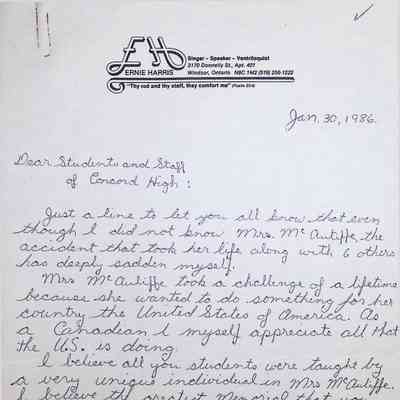 EH
Singer - Speaker - Ventriloquist
3170 Donnelly St., Apt. 401
ERNIE HARRIS Windsor, Ontario N9C 1M2 (519) 250-1222
"Thy rod and thy staff, they comfort me" (Psalm 23:4)
Jan. 30, 1986.
Dear Students and Staff
of Concord High:
Just a line to let you all know that even
though I did not know Mrs. McAuliffe, the
accident that took her life along with 6 others
has deeply sadden myself.
Mrs McAuliffe took a challenge of a lifetime
because she wanted to do something for her
country the United States of America. As
a Canadian I myself appreciate all that
the U.S. is doing.
I believe all you students were taught by
a very unique individual in Mrs McAuliffe.
I believe the greatest Memorial that you